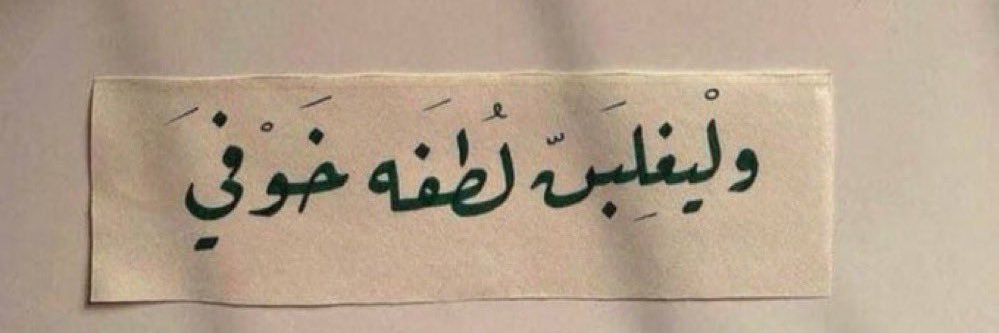 ولْيغلِبَنّ لُطفَه خَوْفيَ